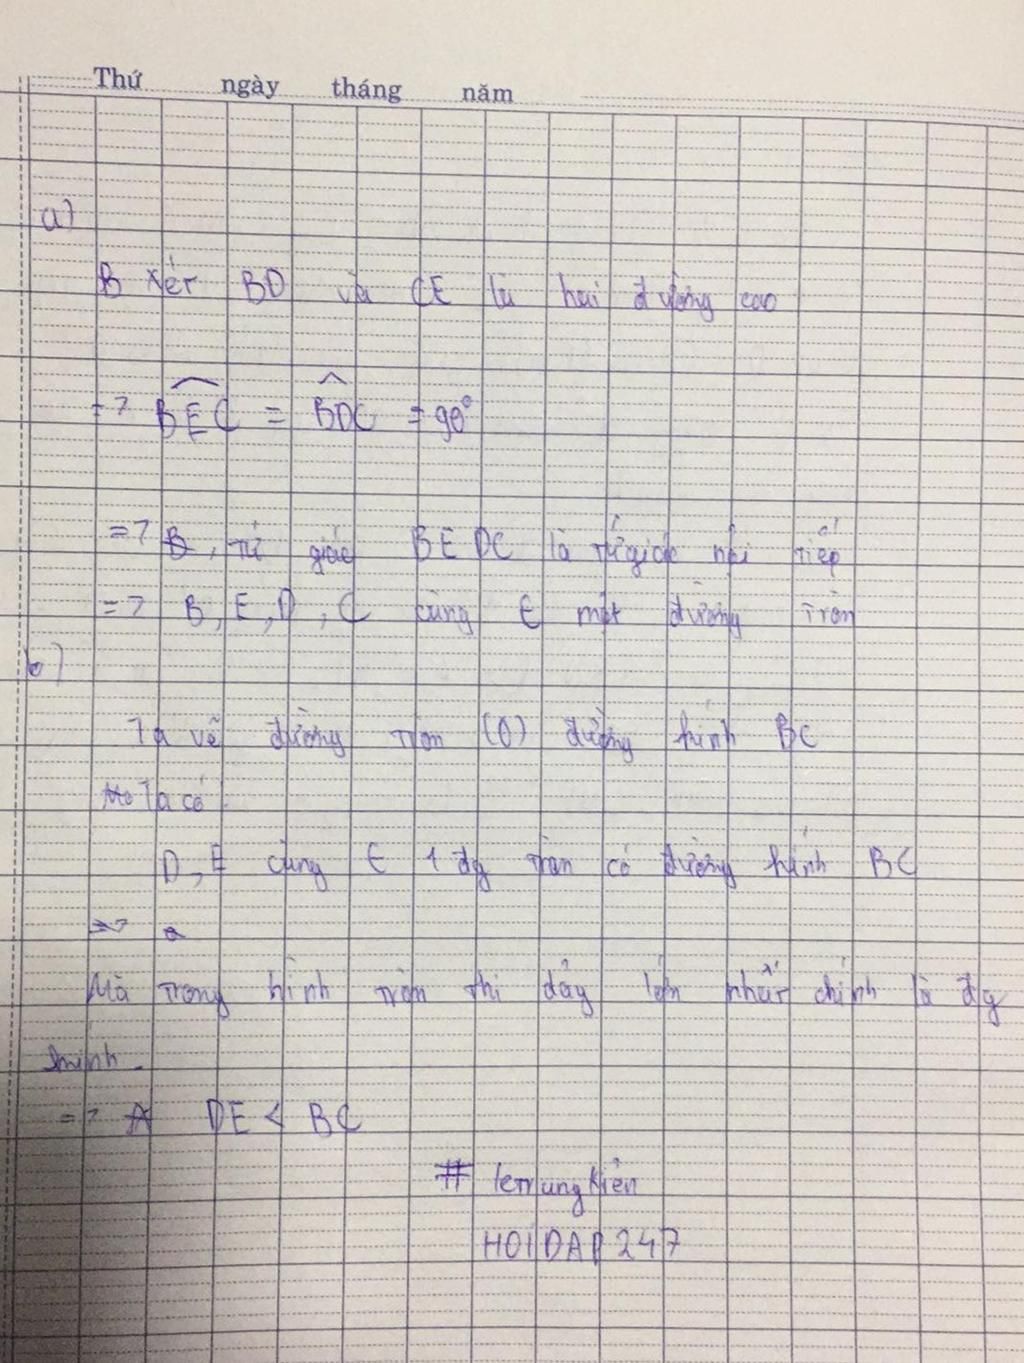 Thứ ngày tháng năm
a)
Xét BD và CE là hai đường cao
=> BEC = BDC = 90°
=> Tứ giác BEDC là tứ giác nội tiếp
=> B, E, D, C cùng ∈ một đường tròn
b)
Ta vẽ đường tròn (O) đường kính BC
Ta có
D, E cùng ∈ 1 đg tròn có đường kính BC
=>
Mà trong hình tròn thì dây lớn nhất chính là đg
kính.
=> DE < BC
# letrungkiên
HOIDAP247